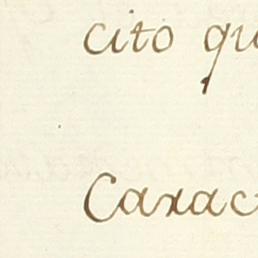 cito qu
Carac